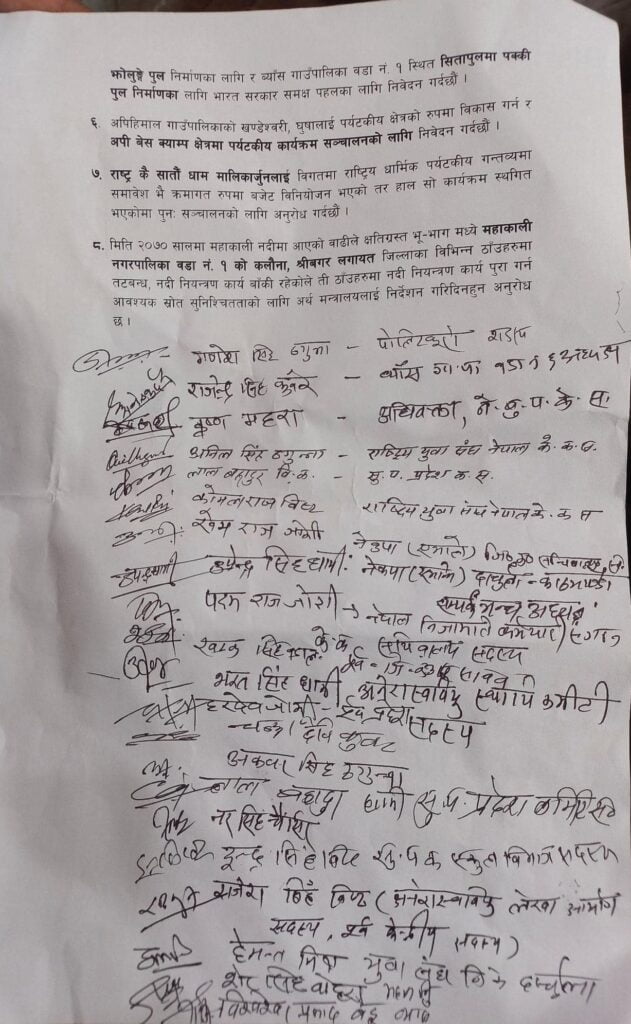 झोलुङ्गे पुल निर्माणका लागि र ब्याँस गाउँपालिका वडा नं. १ स्थित सितापुलमा पक्की
पुल निर्माणका लागि भारत सरकार समक्ष पहलका लागि निवेदन गर्दछौं ।
६. अपिहिमाल गाउँपालिकाको खण्डेश्वरी, घुषालाई पर्यटकीय क्षेत्रको रुपमा विकास गर्न र
अपी बेस क्याम्प क्षेत्रमा पर्यटकीय कार्यक्रम सञ्चालनको लागि निवेदन गर्दछौं ।
७. राष्ट्र कै सातौं धाम मालिकार्जुनलाई विगतमा राष्ट्रिय धार्मिक पर्यटकीय गन्तव्यमा
समावेश भै क्रमागत रुपमा बजेट विनियोजन भएको तर हाल सो कार्यक्रम स्थगित
भएकोमा पुनः सञ्चालनको लागि अनुरोध गर्दछौं ।
८. मिति २०७० सालमा महाकाली नदीमा आएको बाढीले क्षतिग्रस्त भू-भाग मध्ये महाकाली
नगरपालिका वडा नं. १ को कलौना, श्रीबगर लगायत जिल्लाका विभिन्न ठाँउहरुमा
तटबन्ध, नदी नियन्त्रण कार्य बाँकी रहेकोले ती ठाँउहरुमा नदी नियन्त्रण कार्य पुरा गर्न
आवश्यक स्रोत सुनिश्चितताको लागि अर्थ मन्त्रालयलाई निर्देशन गरिदिनहुन अनुरोध
छ ।
गणेश सिंह ठगुन्ना -
राजेन्द्र सिंह कुँवर - ब्याँस गा.पा वडा नं ६ अध्यक्ष
कृष्ण महरा - अधिवक्ता, ने. बु. प. के. स.
अनिल सिंह ठगुन्ना - राष्ट्रिय युवा संघ नेपाल के. क. स.
लाल बहादुर वि.क. - सु. प. प्रदेश क. स.
कोमलराज विष्ट राष्ट्रिय युवा संघ नेपाल के. क स
खेम राज जोशी नेकपा (एमाले)
उपेन्द्र सिंह धामी नेकपा (एमाले) दार्चुला - काठमाण्डौ
सम्पर्क मन्च अध्यक्ष
परम राज जोशी → नेपाल निजामती कर्मचारी संगठन
के. क. सचिवालय सदस्य
भरत सिंह धामी अनेरास्ववियु स्थायी कमिटी
सदस्य
चन्द्रा देवि कुवर
अकवर सिंह ठगुन्ना
लाल बहादुर धामी सु. प. प्रदेश कमिटि
नर सिंह
इन्द्र सिंह विष्ट सु. प क स्कुल विभाग सदस्य
राजेश सिंह विष्ट (अनेरास्ववियु लेखा आयोग
सदस्य, पूर्व केन्द्रीय सदस्य)
हेमन्त मिश्र युवा संघ दार्चुला
सिंह बोहरा